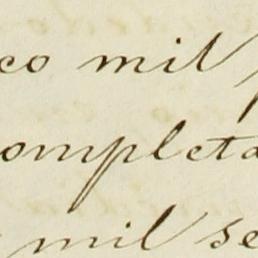 co mil
completa
mil se